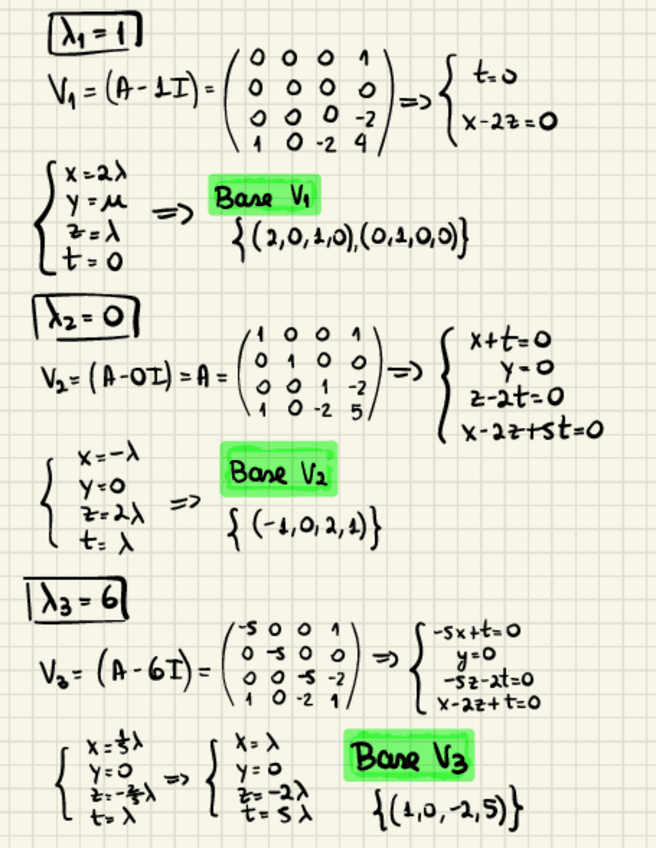 λ₁ = 1
V₁ = (A - 1I) = ( 0 0 0 1 ; 0 0 0 0 ; 0 0 0 -2 ; 1 0 -2 4 ) => { t=0 ; x-2z=0
{ x=2λ ; y=μ ; z=λ ; t=0 => Base V₁
{(2,0,1,0),(0,1,0,0)}
λ₂ = 0
V₂ = (A-0I) = A = ( 1 0 0 1 ; 0 1 0 0 ; 0 0 1 -2 ; 1 0 -2 5 ) => { x+t=0 ; y=0 ; z-2t=0 ; x-2z+5t=0
{ x=-λ ; y=0 ; z=2λ ; t=λ => Base V₂
{(-1,0,2,1)}
λ₃ = 6
V₃ = (A-6I) = ( -5 0 0 1 ; 0 -5 0 0 ; 0 0 -5 -2 ; 1 0 -2 1 ) => { -5x+t=0 ; y=0 ; -5z-2t=0 ; x-2z+t=0
{ x=1/5λ ; y=0 ; z=-2/5λ ; t=λ => { x=λ ; y=0 ; z=-2λ ; t=5λ Base V₃
{(1,0,-2,5)}